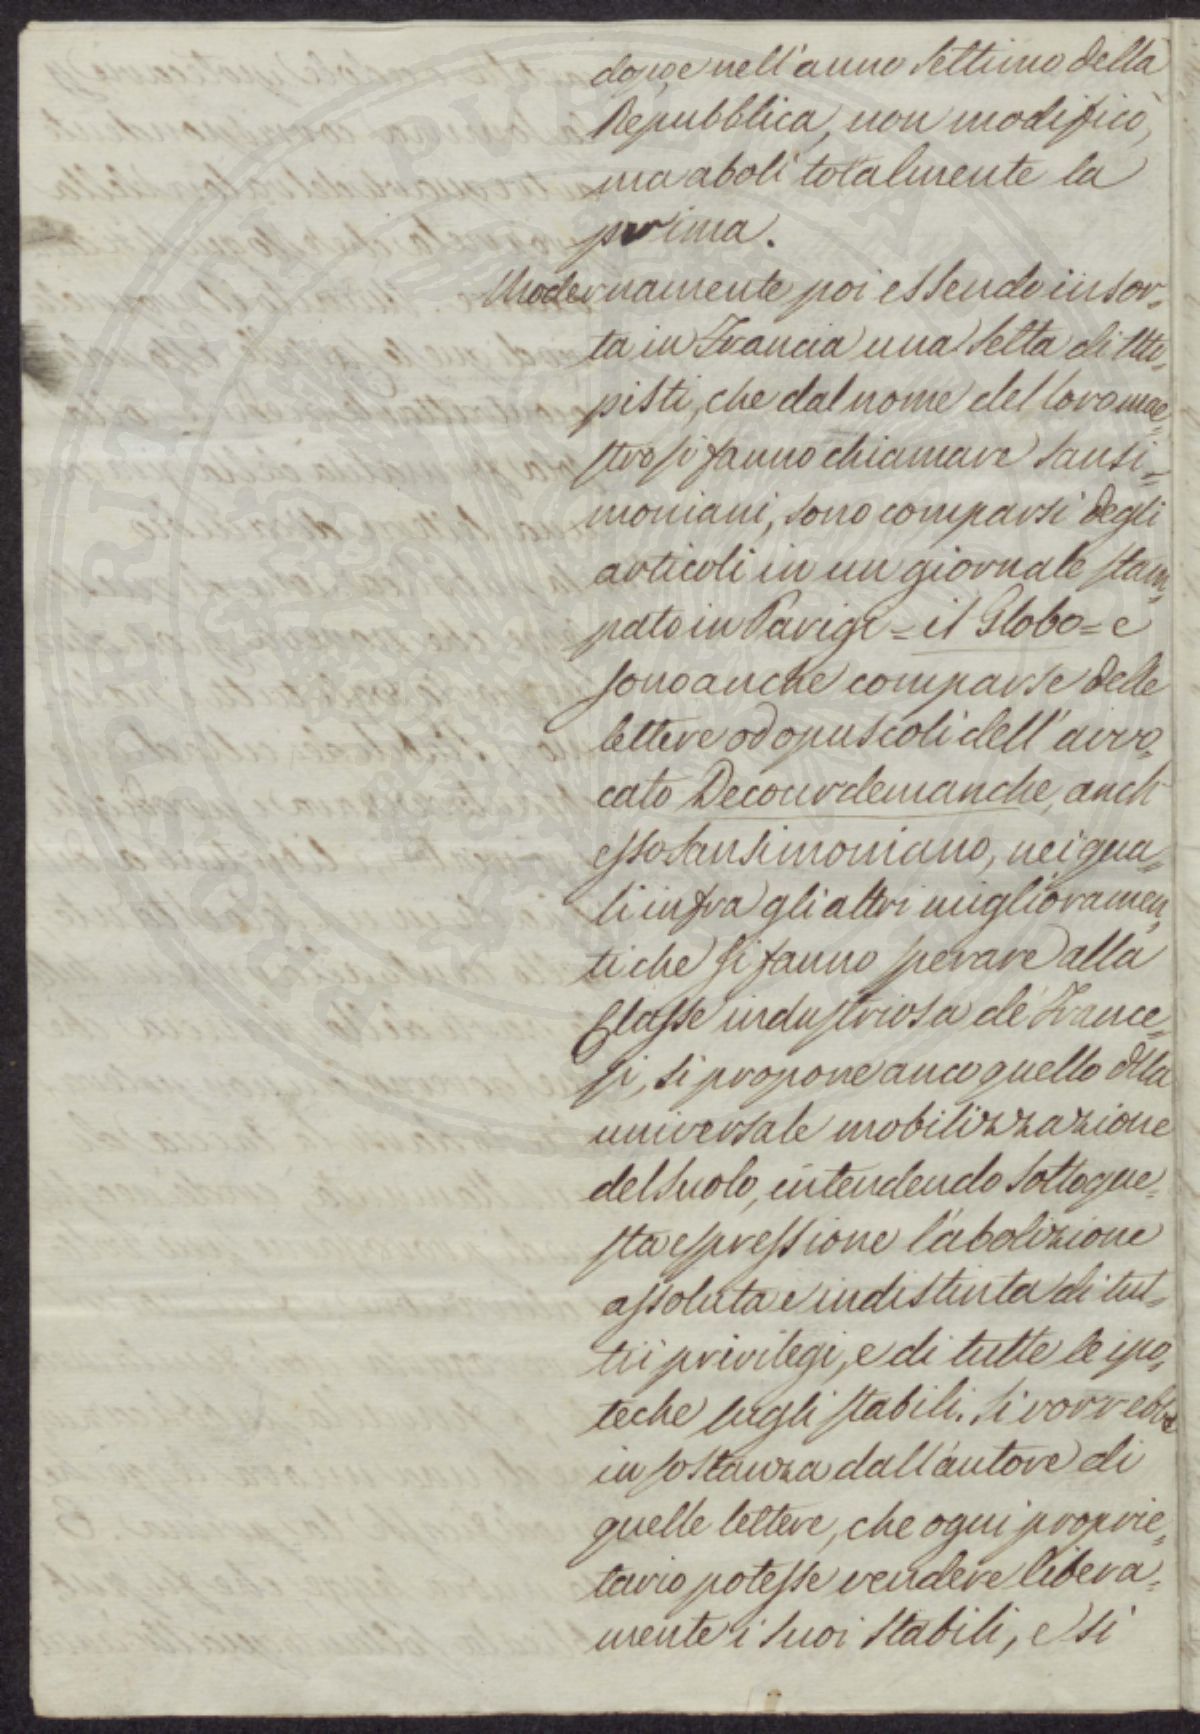 dopo e nell'anno settimo della
Repubblica, non modificò,
ma abolì totalmente la
prima.
Modernamente poi essendo insor=
ta in Francia una setta di Uto=
pisti, che dal nome del loro mae=
stro si fanno chiamare Sansi=
moniani, sono comparsi degli
articoli in un giornale stam=
pato in Parigi = il Globo = e
sono anche comparse delle
lettere od opuscoli dell'avvo=
cato Decourdemanche, anch'
esso Sansimoniano, nei qua=
li infra gli altri miglioramen=
ti che si fanno sperare alla
Classe industriosa de' France=
si, si propone anco quello della
universale mobilizzazione
del suolo, intendendo sotto que=
sta espressione l'abolizione
assoluta e indistinta di tut=
ti i privilegi, e di tutte le ipo=
teche sugli stabili. Si vorrebbe
in sostanza dall'autore di
quelle lettere, che ogni proprie=
tario potesse vendere libera=
mente i suoi stabili, e si